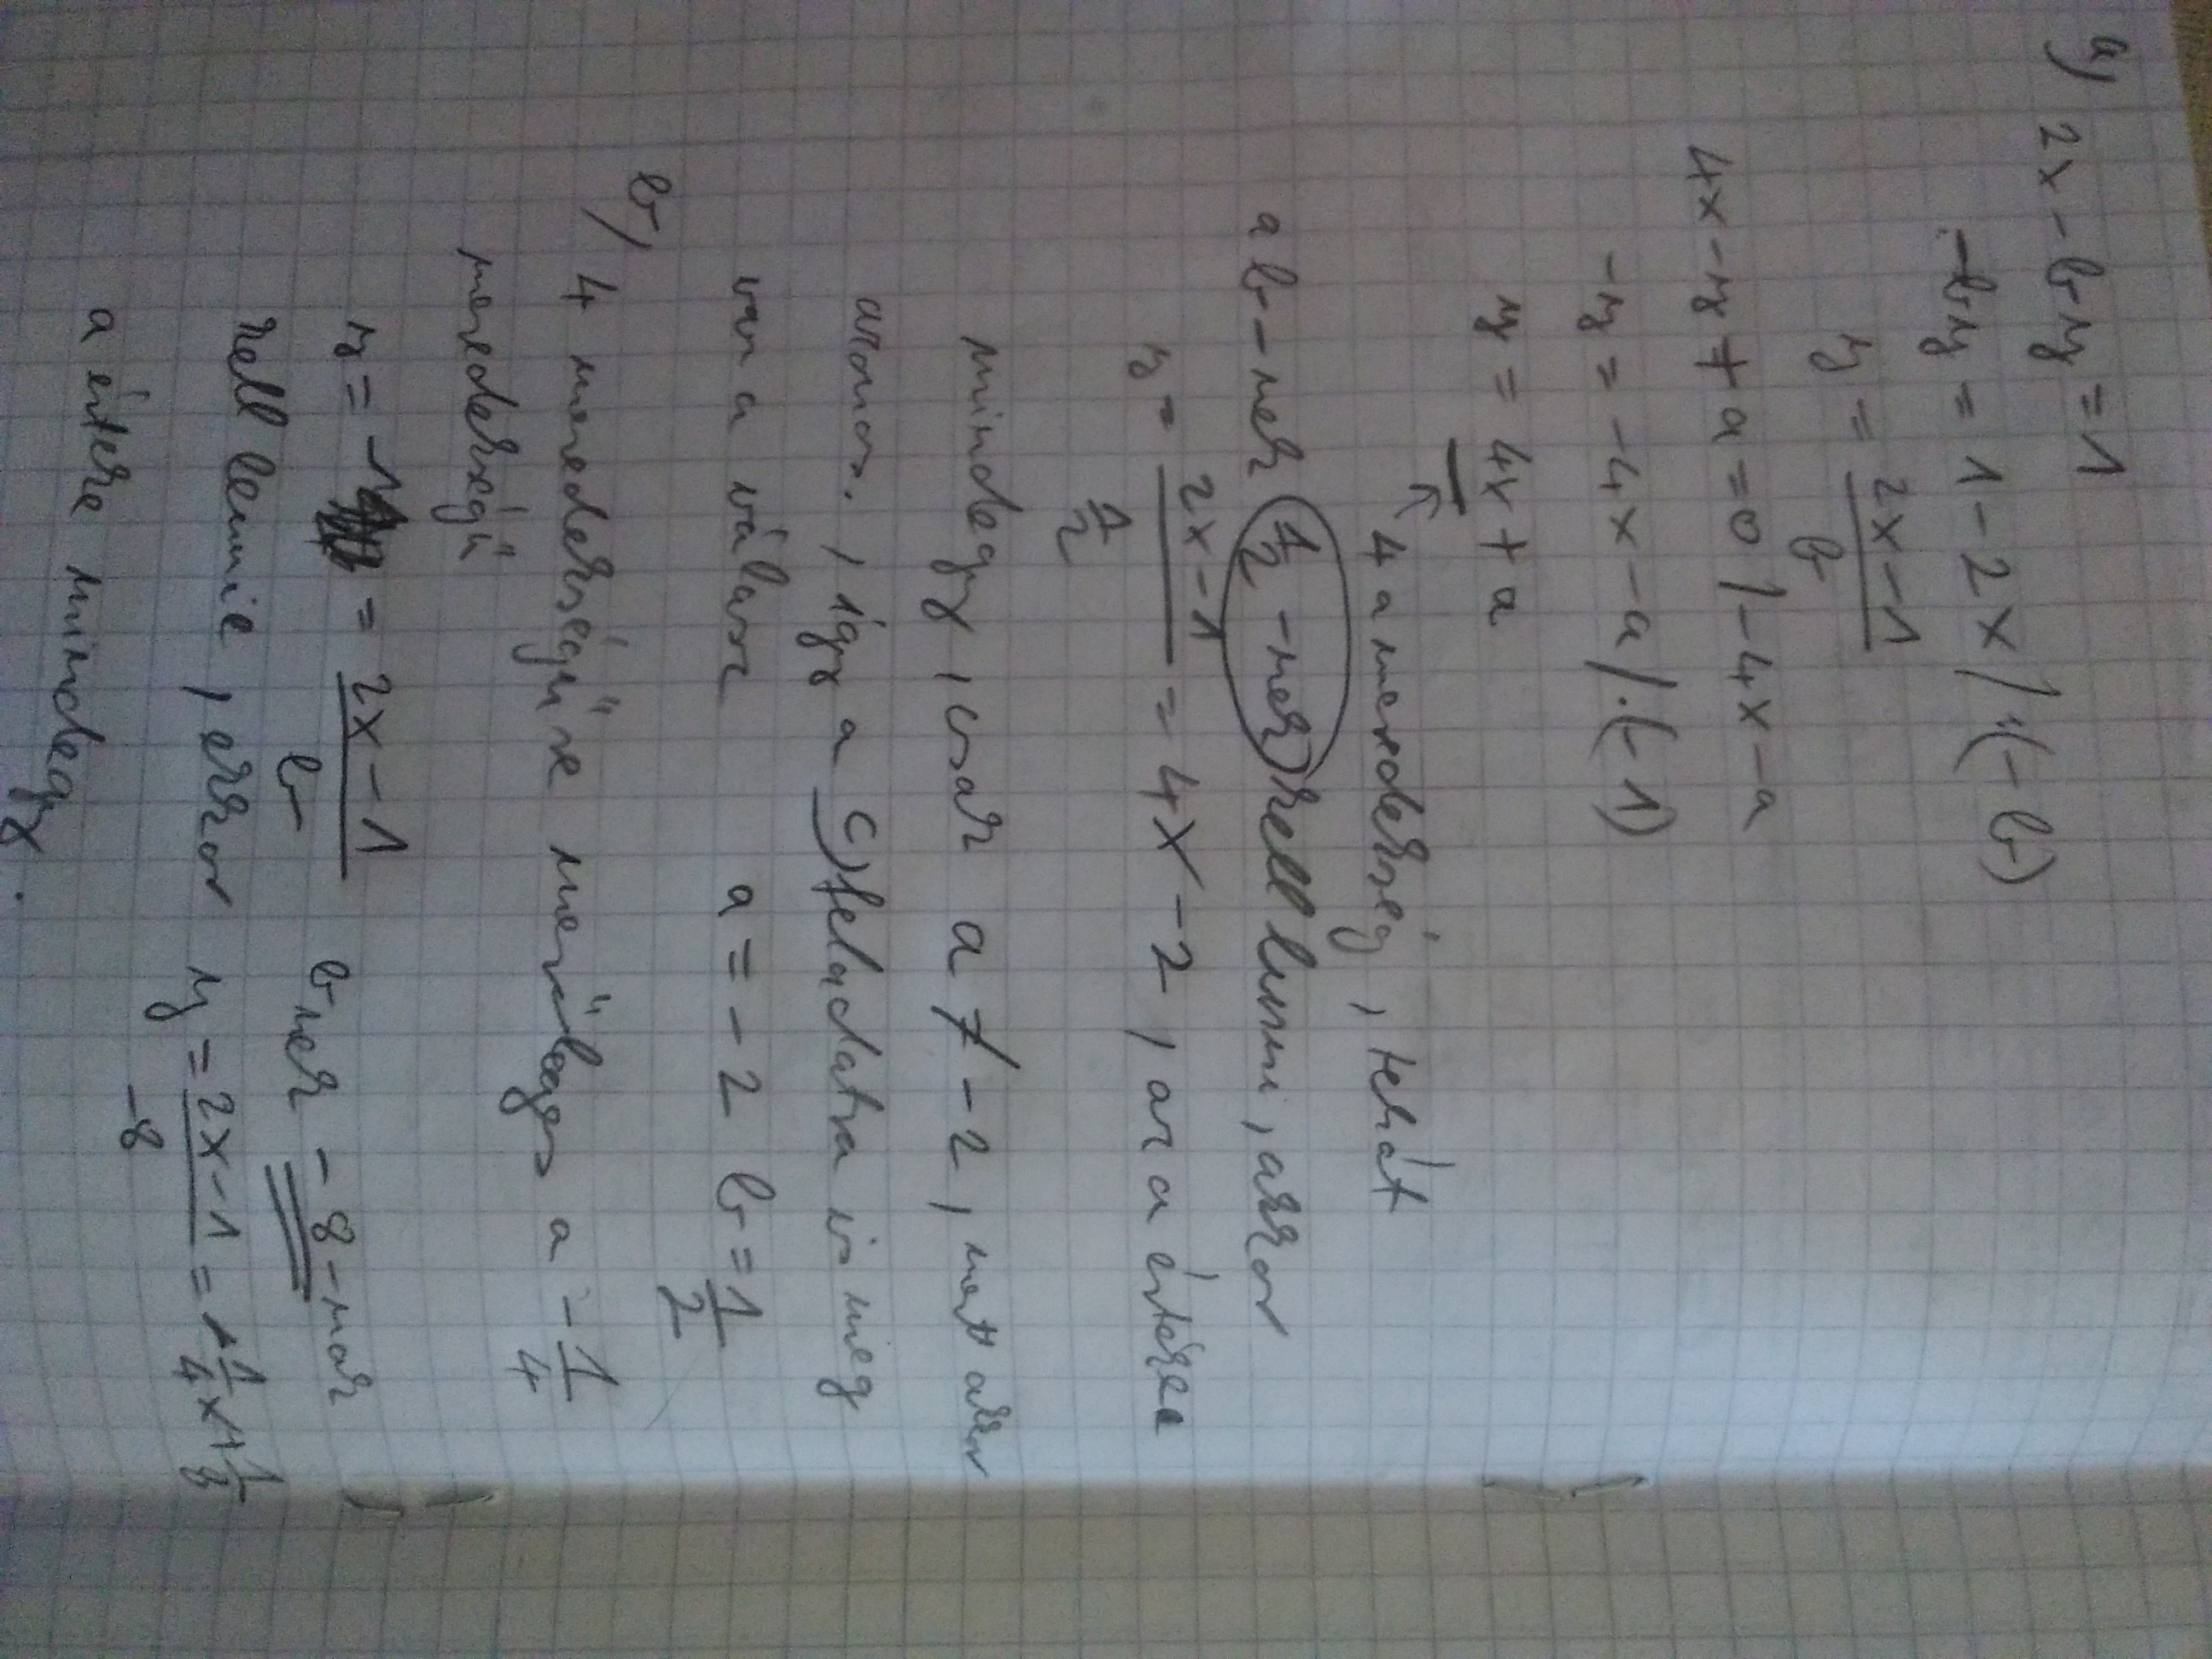 a) 2x - by = 1
-by = 1 - 2x / :(-b)
y = \frac{2x-1}{b}
4x - y + a = 0 / -4x - a
-y = -4x - a / ·(-1)
y = 4x + a
↖ 4 a meredekség, tehát
a b-nek \frac{1}{2}-nek kell lenni, akkor
y = \frac{2x-1}{\frac{1}{2}} = 4x - 2, az a értéke
mindegy, csak a ≠ -2, mert akkor
azonos, így a c) feladatra is meg
van a válasz a = -2 b = \frac{1}{2}
b) 4 meredekségűre merőleges a -\frac{1}{4}
meredekségű
y = = \frac{2x-1}{b} b nek -8-nak
kell lennie, ekkor y = \frac{2x-1}{-8} = \frac{1}{4}x \frac{1}{8}
a értéke mindegy.